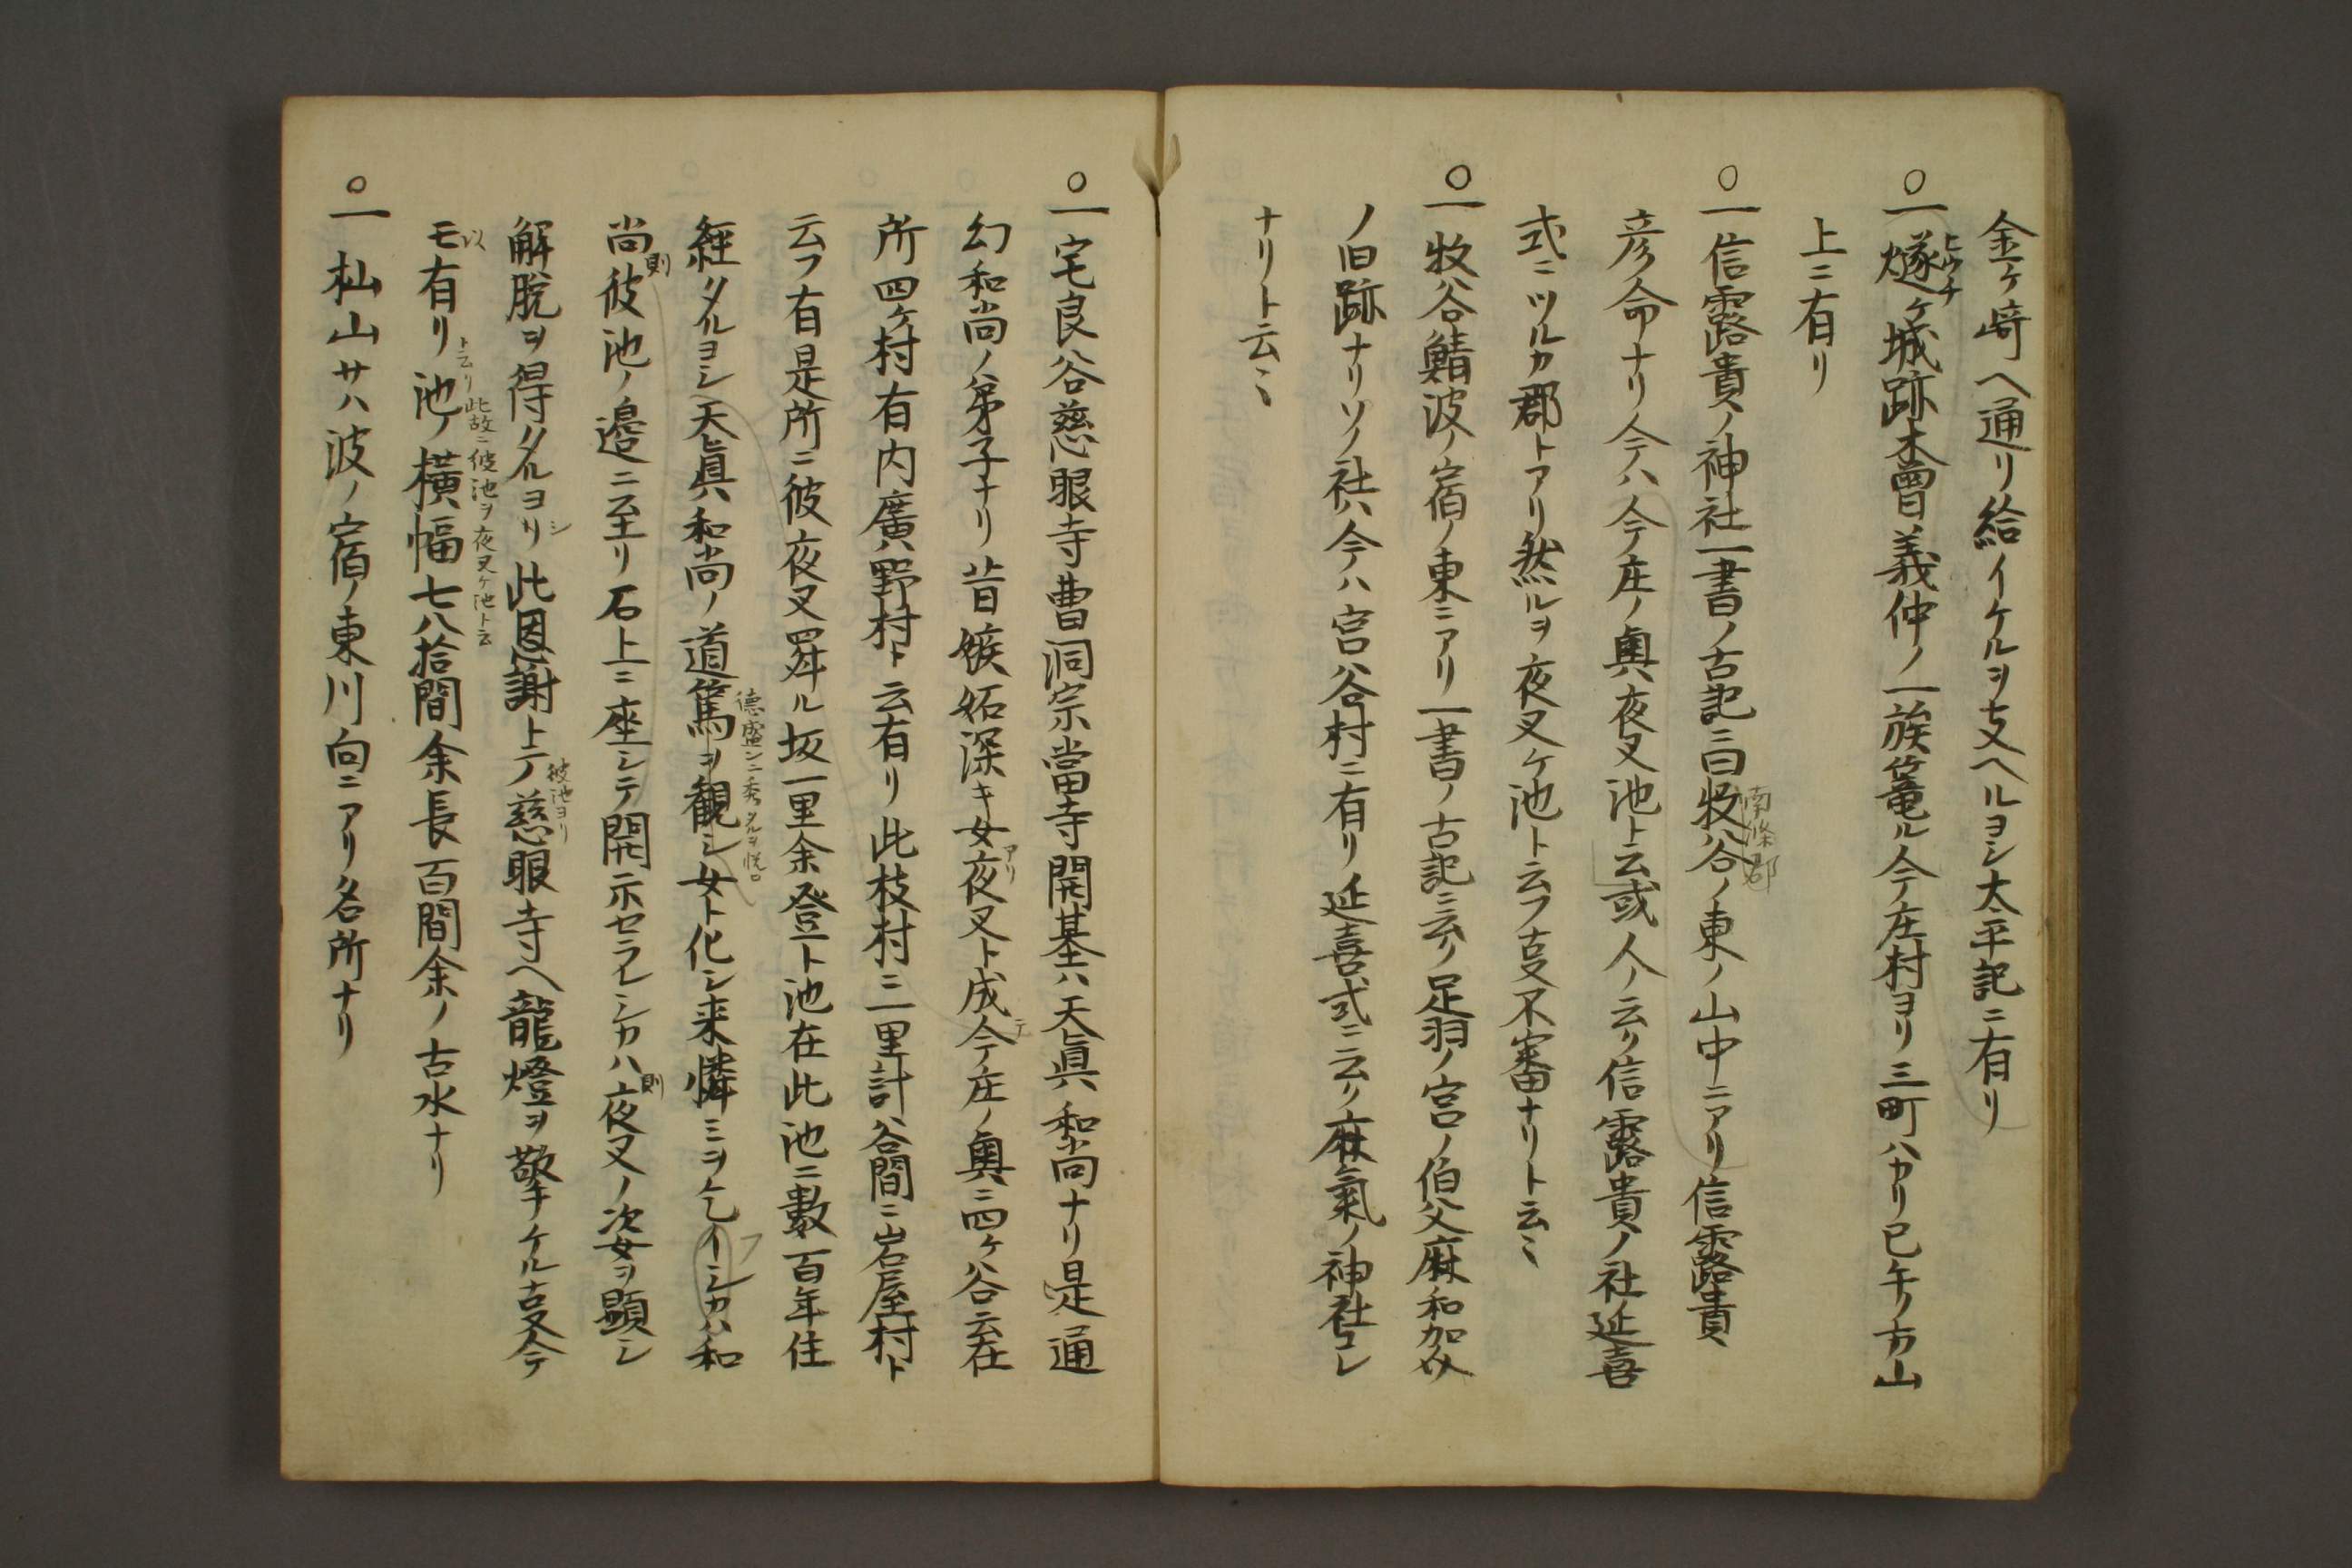 金ケ﨑ヘ通リ給イケルヲ支ヘルヨシ太平記ニ有リ
○一燧ヒウチケ城跡木曽義仲ノ一族篭ル今庄村ヨリ三町ハカリ巳午ノ方山
上ニ有リ
○一信露貴ノ神社一書ノ古記ニ曰牧谷ノ東ノ山中ニアリ信露貴
南條郡
彦命ナリ今ハ今庄ノ奥夜叉池ト云或人ノ云リ信露貴ノ社延喜
式ニツルカ郡トアリ然ルヲ夜叉ケ池ト云フ叓不審ナリト云〻
○一牧谷鯖波ノ宿ノ東ニアリ一書ノ古記ニ云リ足羽ノ宮ノ伯父麻和加介
ノ旧跡ナリソノ社ハ今ハ宮谷村ニ有リ延喜式ニ云リ麻氣ノ神社コレ
ナリト云〻
○一宅良谷慈眼寺曹洞宗當寺開基ハ天眞和尚ナリ是通
幻和尚ノ弟子ナリ昔嫉妬深キ女夜叉ト成今庄ノ奥ニ四ケ谷云在
アリ
テ
所四ケ村有内廣野村ト云有リ此枝村ニ二里計谷間ニ岩屋村ト
云フ有是所ニ彼夜叉舜ル坂一里余登ト池在此池ニ數百年住
経タルヨシ天眞和尚ノ道篤ヲ観シ女ト化シ来憐ミヲ乞イシカハ和
徳盛ンニ秀タルヲ悦ロ
フ
尚彼池ノ邉ニ至リ石上ニ座シテ開示セラレシカハ夜叉ノ姿ヲ顕シ
則
則
解脱ヲ得タルヨリ此恩謝トテ慈眼寺ヘ龍燈ヲ擎ケル叓今
シ
彼池ヨリ
モ有リ池ノ横幅七八拾間余長百間余ノ古水ナリ
以
ト云リ此故ニ彼池ヲ夜叉ケ池ト云
○一杣山サハ波ノ宿ノ東川向ニアリ名所ナリ